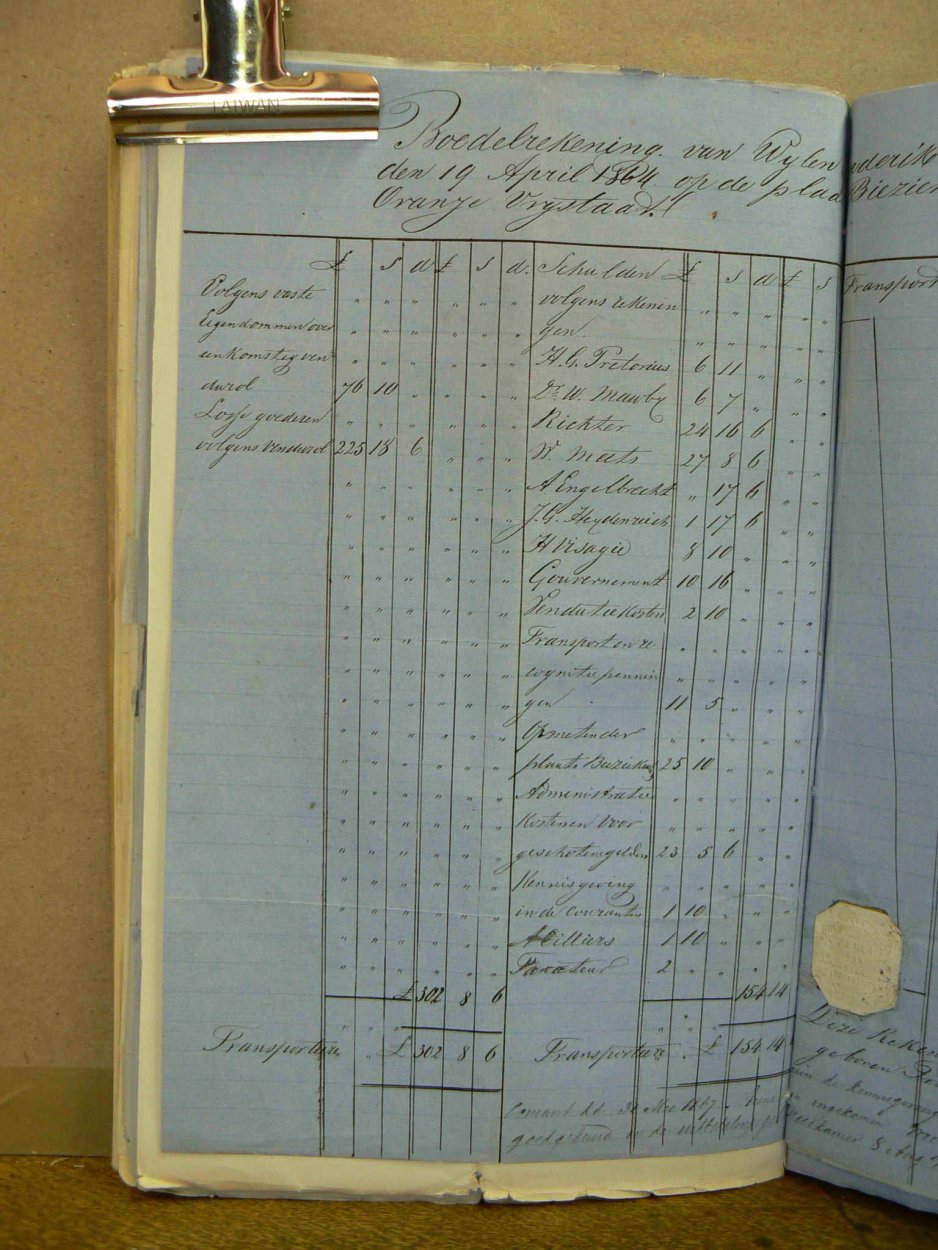 TAIWAN
Boedelrekening van Wylen
den 19 April 1864 op de plaa
Oranje Vrystaat
£ S d £ S d. Schulden £ S d £ S
Volgens vaste " " " " " " volgens rekenen " " " " "
Eigendommen over " " " " " " gen " " " " "
eenkomstig ven " " " " " " H. G. Pretorius 6 11 " " "
durol 76 10 " " " " Dr. W. Mawby 6 7 " " "
Losse goederen " " " " " " Richter 24 16 6 " "
volgens Vendurol 225 18 6 " " " W Mats 27 8 6 " "
" " " " " " A Engelbrecht " 17 6 " "
" " " " " " J. G. Heydenreich 1 17 6 " "
" " " " " " H Visagie 8 10 " " "
" " " " " " Gouvernement 10 16 " " "
" " " " " " Vendutie Kosten 2 10 " " "
" " " " " " Transport en re " " " " "
" " " " " " cognitie pennin " " " " "
" " " " " " gen 11 5 " " "
" " " " " " Opmeten der " " " " "
" " " " " " plaats 25 10 " " "
" " " " " " Administratie " " " " "
" " " " " " Kosten en Voor " " " " "
" " " " " " geschotene gelden 23 5 6 " "
" " " " " " Kennisgeving " " " " "
" " " " " " in de Couranten 1 10 " " "
" " " " " " A Cilliers 1 10 " " "
" " " " " " Taxateur 2 " " " "
£ 302 8 6 154 14
Transporteere " £ 302 8 6 Transporteere " £ 154 14
goedgekeurd
derik
Biezien
Transport
Deze Reken
geboren